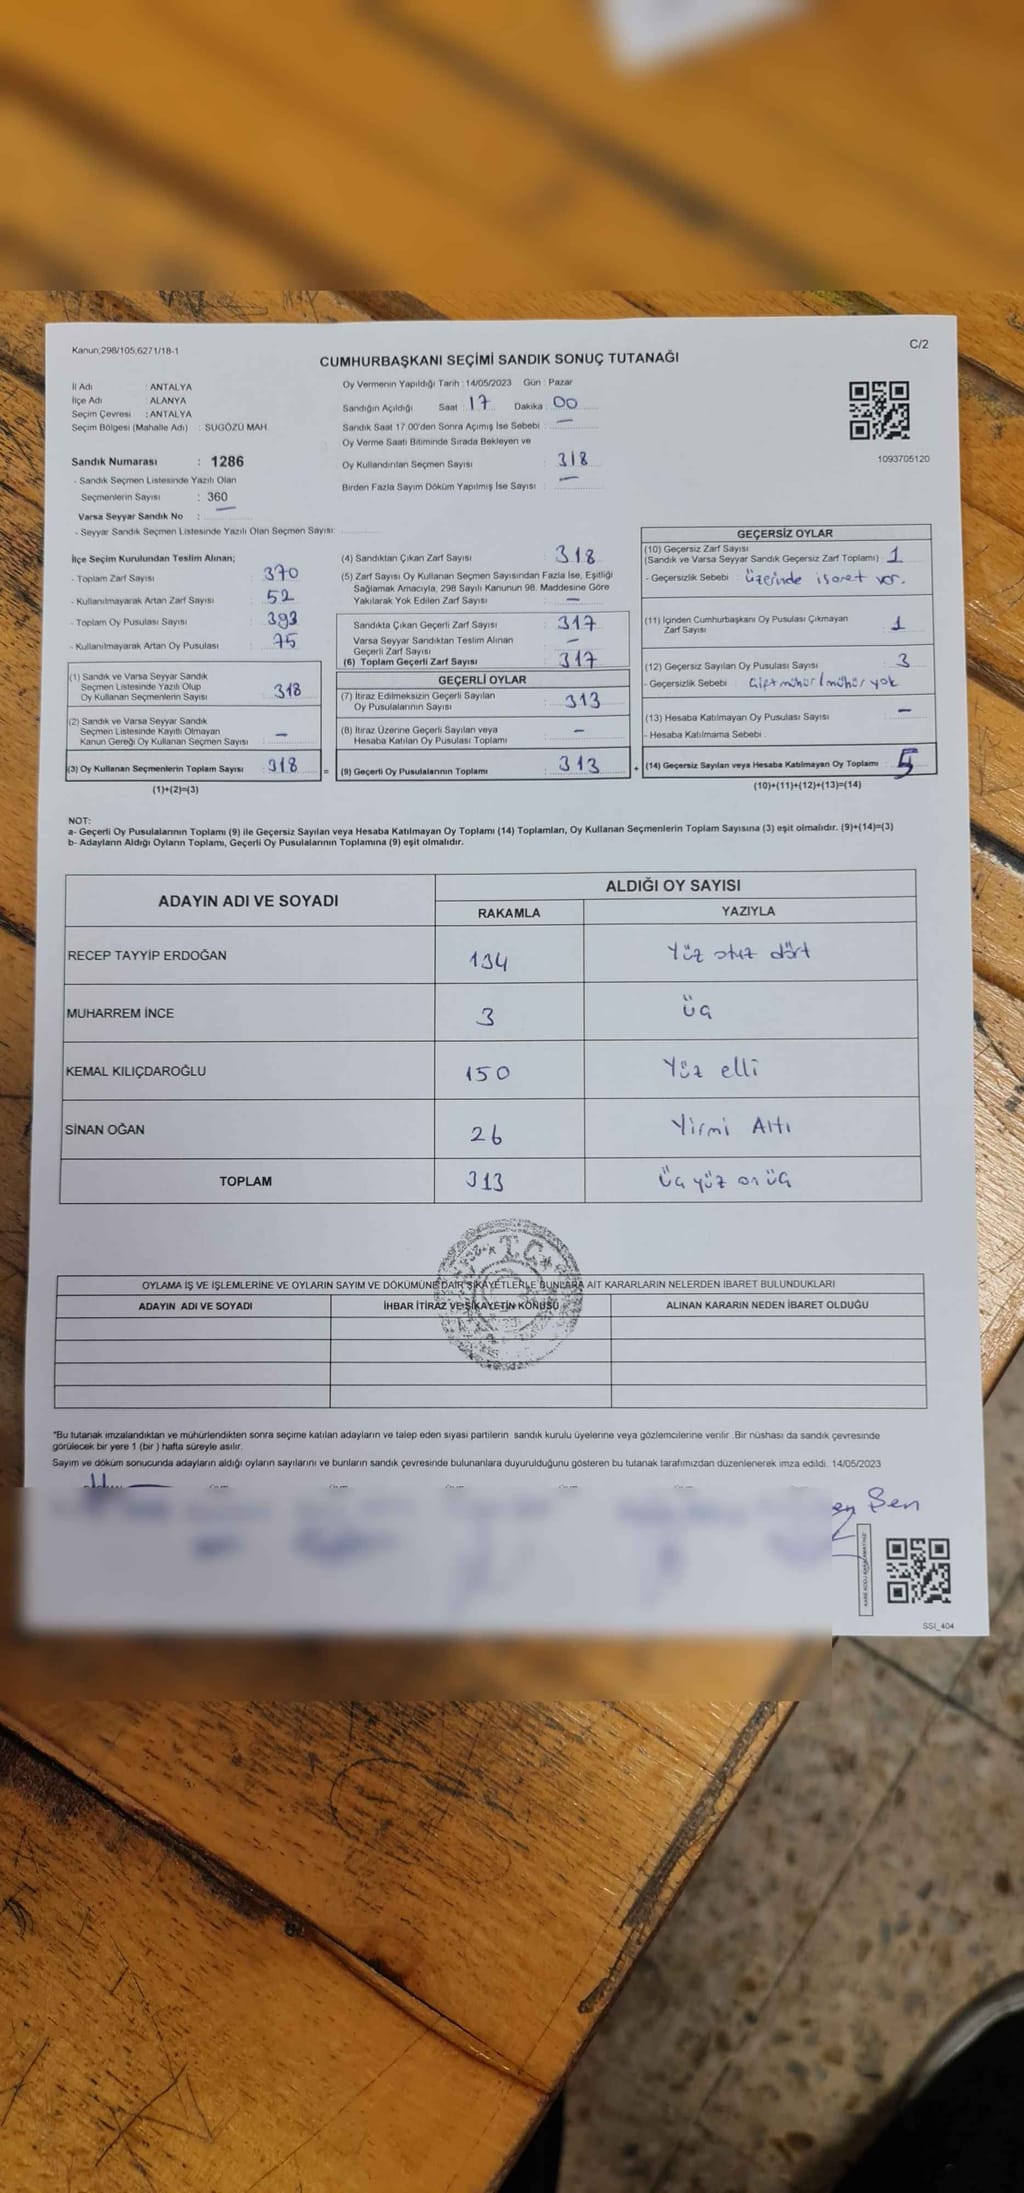 Kanun;298/105;6271/18-1
C/2
CUMHURBAŞKANI SEÇİMİ SANDIK SONUÇ TUTANAĞI
İl Adı : ANTALYA
İlçe Adı : ALANYA
Seçim Çevresi : ANTALYA
Seçim Bölgesi (Mahalle Adı) : SUGÖZÜ MAH.
Oy Vermenin Yapıldığı Tarih : 14/05/2023 Gün : Pazar
Sandığın Açıldığı Saat : 17 Dakika : 00
Sandık Saat 17:00'den Sonra Açımış İse Sebebi : —
Oy Verme Saati Bitiminde Sırada Bekleyen ve
Oy Kullandırılan Seçmen Sayısı : 318
Birden Fazla Sayım Döküm Yapılmış İse Sayısı : —
1093705120
Sandık Numarası : 1286
- Sandık Seçmen Listesinde Yazılı Olan
Seçmenlerin Sayısı : 360
Varsa Seyyar Sandık No : —
- Seyyar Sandık Seçmen Listesinde Yazılı Olan Seçmen Sayısı:
İlçe Seçim Kurulundan Teslim Alınan;
- Toplam Zarf Sayısı : 370
- Kullanılmayarak Artan Zarf Sayısı : 52
- Toplam Oy Pusulası Sayısı : 393
- Kullanılmayarak Artan Oy Pusulası : 75
(1) Sandık ve Varsa Seyyar Sandık
Seçmen Listesinde Yazılı Olup
Oy Kullanan Seçmenlerin Sayısı : 318
(2) Sandık ve Varsa Seyyar Sandık
Seçmen Listesinde Kayıtlı Olmayan
Kanun Gereği Oy Kullanan Seçmen Sayısı : —
(3) Oy Kullanan Seçmenlerin Toplam Sayısı : 318
(1)+(2)=(3)
(4) Sandıktan Çıkan Zarf Sayısı : 318
(5) Zarf Sayısı Oy Kullanan Seçmen Sayısından Fazla İse, Eşitliği
Sağlamak Amacıyla, 298 Sayılı Kanunun 98. Maddesine Göre
Yakılarak Yok Edilen Zarf Sayısı : —
Sandıkta Çıkan Geçerli Zarf Sayısı : 317
Varsa Seyyar Sandıktan Teslim Alınan
Geçerli Zarf Sayısı : —
(6) Toplam Geçerli Zarf Sayısı : 317
GEÇERLİ OYLAR
(7) İtiraz Edilmeksizin Geçerli Sayılan
Oy Pusulalarının Sayısı : 313
(8) İtiraz Üzerine Geçerli Sayılan veya
Hesaba Katılan Oy Pusulası Toplamı : —
= (9) Geçerli Oy Pusulalarının Toplamı : 313
GEÇERSİZ OYLAR
(10) Geçersiz Zarf Sayısı
(Sandık ve Varsa Seyyar Sandık Geçersiz Zarf Toplamı) : 1
- Geçersizlik Sebebi : üzerinde işaret var.
(11) İçinden Cumhurbaşkanı Oy Pusulası Çıkmayan
Zarf Sayısı : 1
(12) Geçersiz Sayılan Oy Pusulası Sayısı : 3
- Geçersizlik Sebebi : Çift mühür/mühür yok
(13) Hesaba Katılmayan Oy Pusulası Sayısı : —
- Hesaba Katılmama Sebebi :
+ (14) Geçersiz Sayılan veya Hesaba Katılmayan Oy Toplamı : 5
(10)+(11)+(12)+(13)=(14)
NOT:
a- Geçerli Oy Pusulalarının Toplamı (9) ile Geçersiz Sayılan veya Hesaba Katılmayan Oy Toplamı (14) Toplamları, Oy Kullanan Seçmenlerin Toplam Sayısına (3) eşit olmalıdır. (9)+(14)=(3)
b- Adayların Aldığı Oyların Toplamı, Geçerli Oy Pusulalarının Toplamına (9) eşit olmalıdır.
ADAYIN ADI VE SOYADI
ALDIĞI OY SAYISI
RAKAMLA YAZIYLA
RECEP TAYYİP ERDOĞAN 134 Yüz otuz dört
MUHARREM İNCE 3 üç
KEMAL KILIÇDAROĞLU 150 Yüz elli
SİNAN OĞAN 26 Yirmi Altı
TOPLAM 313 üç yüz on üç
T.C.
OYLAMA İŞ VE İŞLEMLERİNE VE OYLARIN SAYIM VE DÖKÜMÜNE DAİR ŞİKAYETLERLE BUNLARA AİT KARARLARIN NELERDEN İBARET BULUNDUKLARI
ADAYIN ADI VE SOYADI İHBAR İTİRAZ VE ŞİKAYETİN KONUSU ALINAN KARARIN NEDEN İBARET OLDUĞU
*Bu tutanak imzalandıktan ve mühürlendikten sonra seçime katılan adayların ve talep eden siyasi partilerin sandık kurulu üyelerine veya gözlemcilerine verilir. Bir nüshası da sandık çevresinde
görülecek bir yere 1 (bir ) hafta süreyle asılır.
Sayım ve döküm sonucunda adayların aldığı oyların sayılarını ve bunların sandık çevresinde bulunanlara duyurulduğunu gösteren bu tutanak tarafımızdan düzenlenerek imza edildi. 14/05/2023
Şen
SSI_404